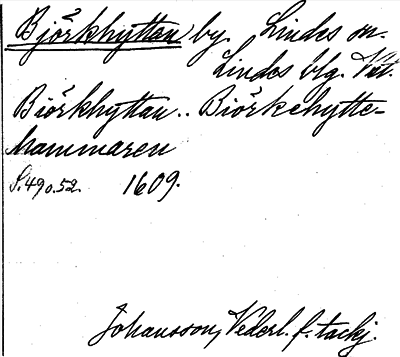 Björkhyttan by. Lindes sn.
Lindes blg. Vstl.
Biörkhyttan.. Biörkehytte-
hammaren
S. 490. 52. 1609.
Johansson, Vederl. f. tackj.